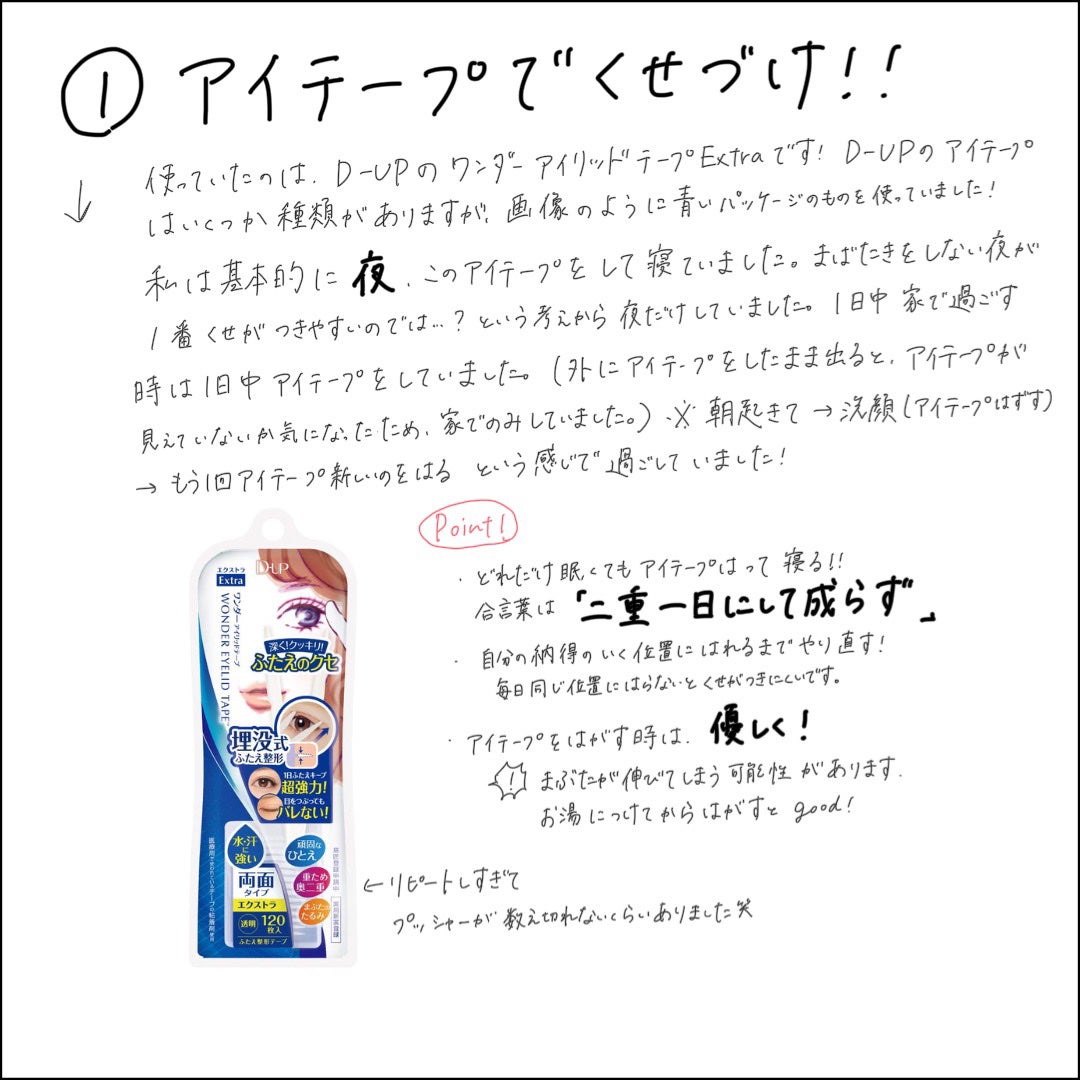 ① アイテープでくせづけ!!
使っていたのは、D-UPのワンダーアイリッドテープExtraです! D-UPのアイテープ
↓
はいくつか種類がありますが、画像のように青いパッケージのものを使っていました!
私は基本的に夜、このアイテープをして寝ていました。まばたきをしない夜が
1番くせがつきやすいのでは…?という考えから夜だけしていました。1日中家で過ごす
時は1日中アイテープをしていました。(外にアイテープをしたまま出ると、アイテープが
見えていないか気になったため、家でのみしていました。)※朝起きて→洗顔(アイテープはずす)
→もう1回アイテープ新しいのをはる という感じで過ごしていました!
Point!
・どれだけ眠くてもアイテープはって寝る!!
合言葉は「二重一日にして成らず」
・自分の納得のいく位置にはれるまでやり直す!
毎日同じ位置にはらないとくせがつきにくいです。
・アイテープをはがす時は、優しく!
! まぶたが伸びてしまう可能性があります.
お湯につけてからはがすとgood!
←リピートしすぎて
プッシャーが数え切れないくらいありました笑
D-UP
エクストラ
Extra
ワンダーアイリッドテープ
WONDER EYELID TAPE
深く!クッキリ!
ふたえのクセ
埋没式
ふたえ整形
1日ふたえキープ
超強力!
目をつぶっても
バレない!
水・汗
に
強い
頑固な
ひとえ
両面
タイプ
重ため
奥二重
エクストラ
まぶたの
たるみ
透明
120
枚入
ふたえ整形テープ